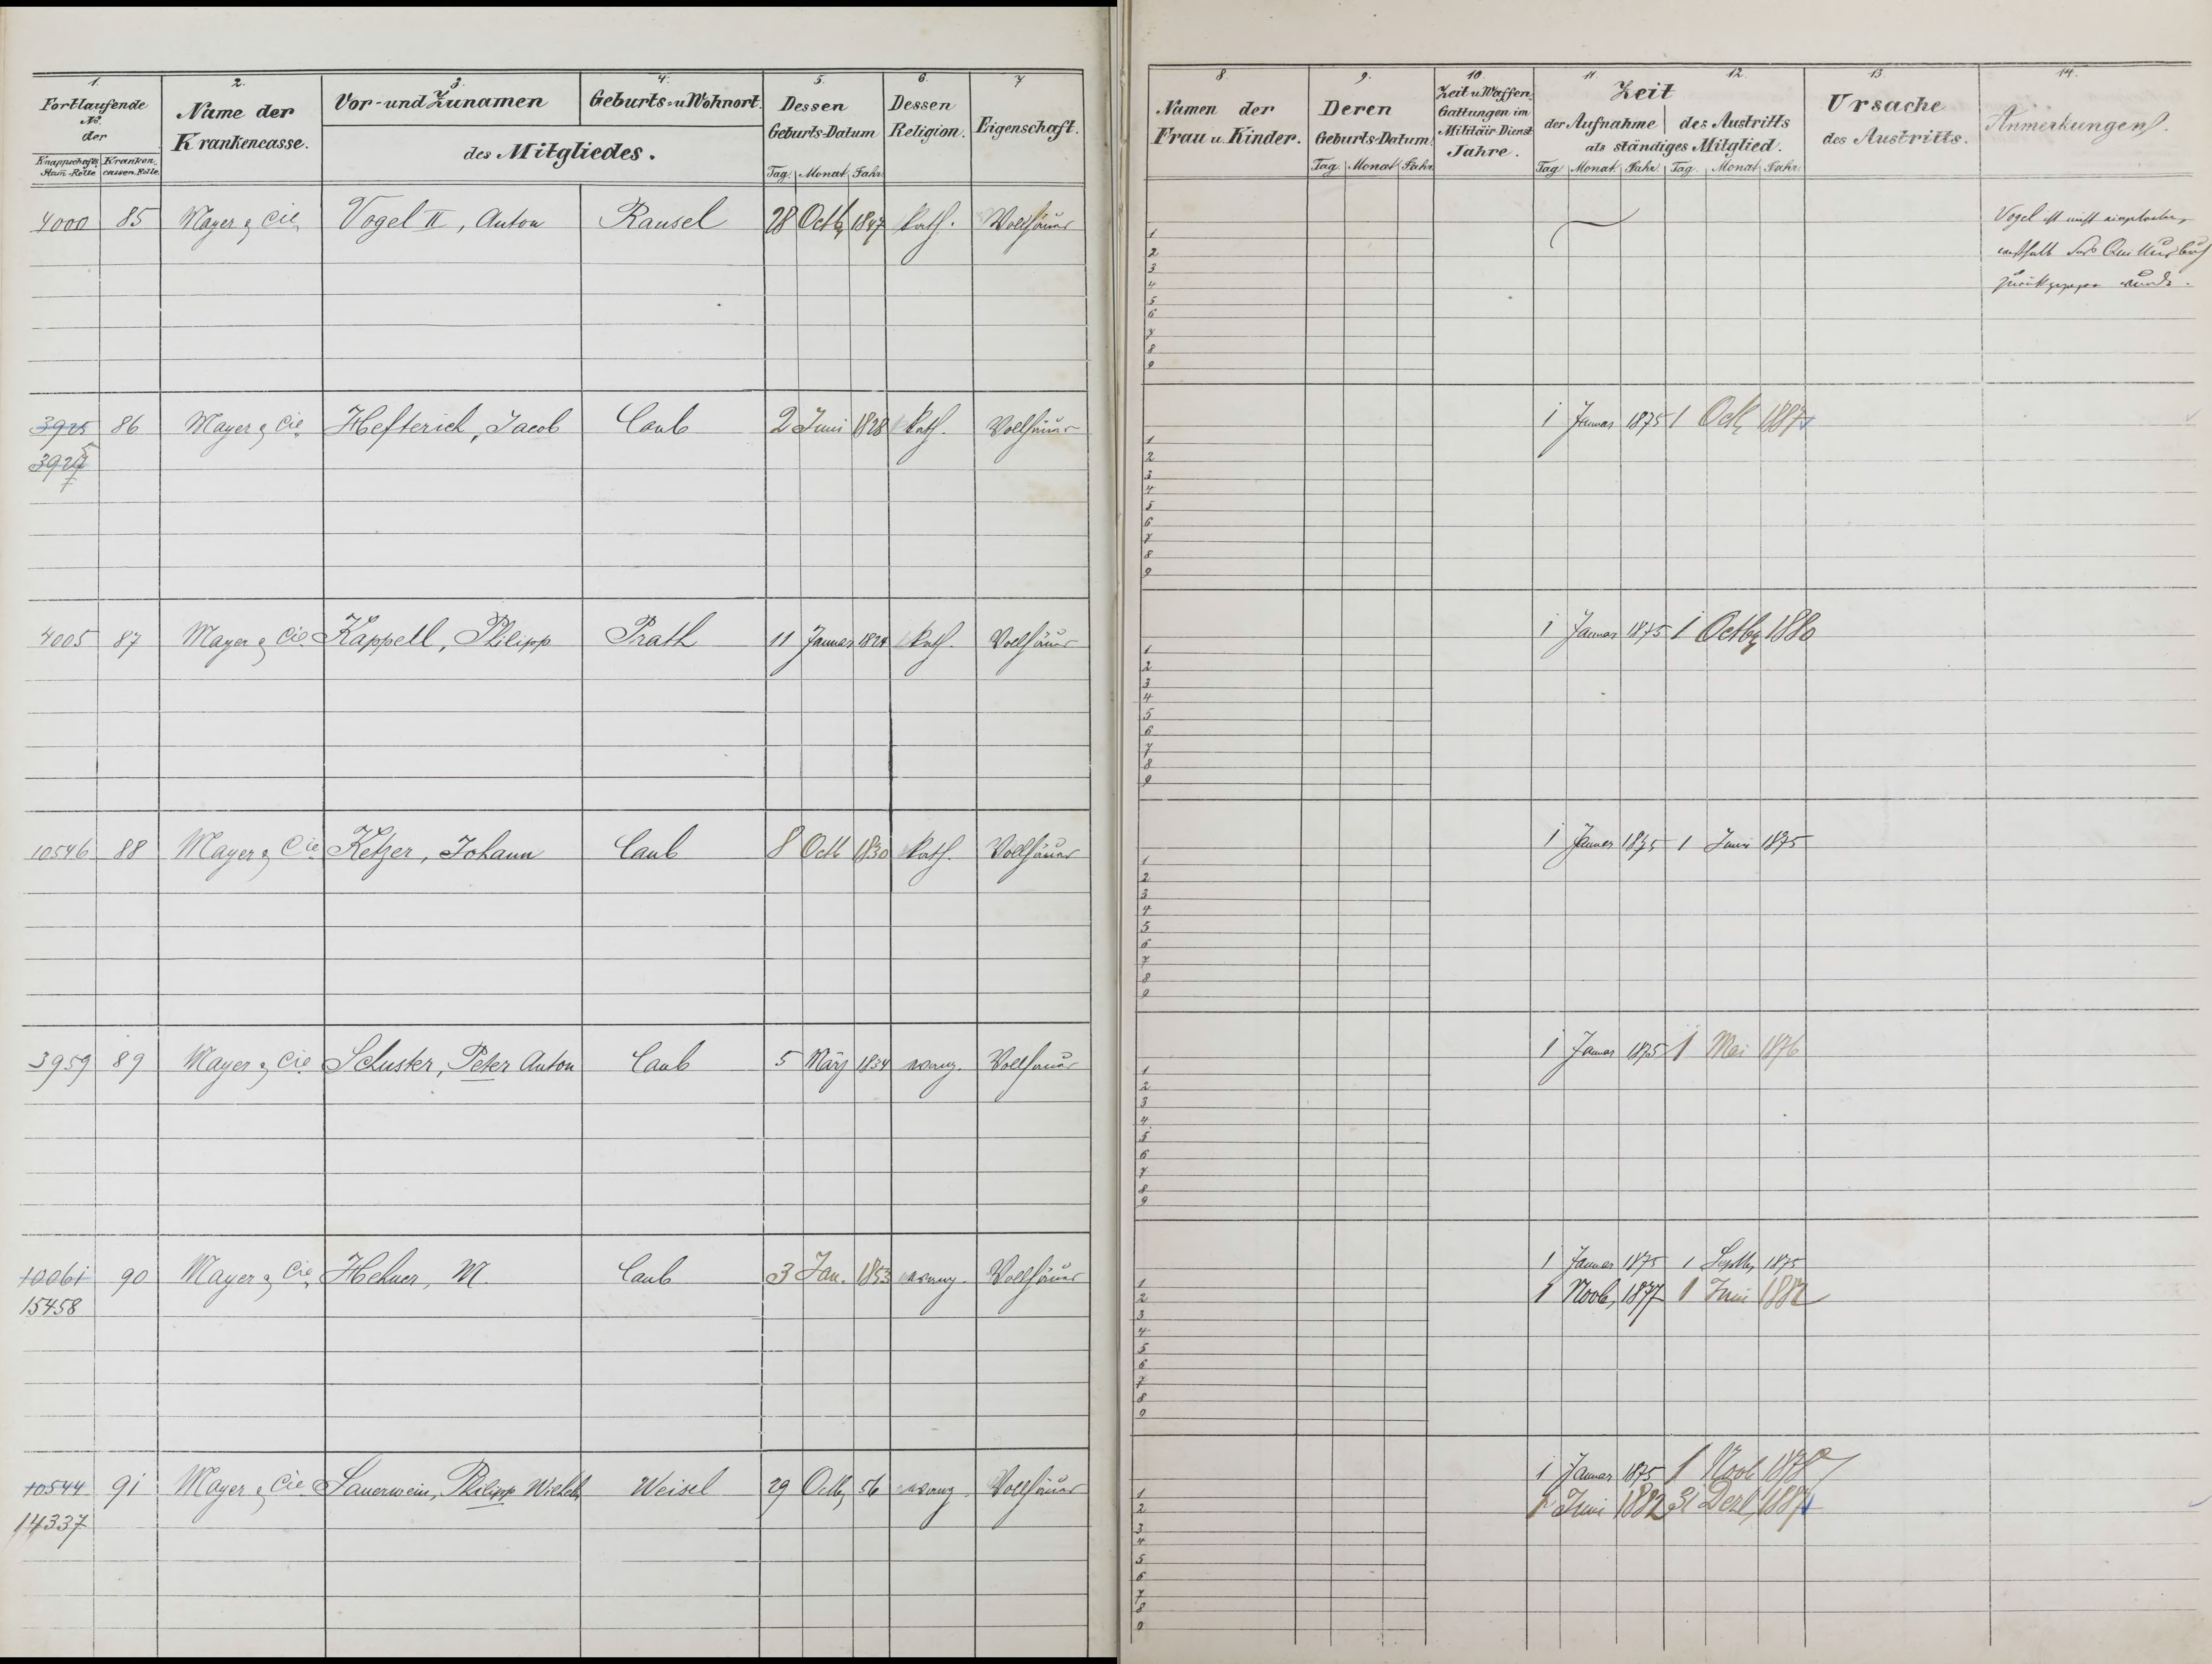 1. 2. 3. 4. 5. 6. 7
Fortlaufende No. der
Knappschafts Stam-Rolle Kranken-cassen-Rolle
Name der Krankencasse.
Vor- und Zunamen Geburts- u. Wohnort.
des Mitgliedes.
Dessen Geburts-Datum
Tag. Monat. Jahr.
Dessen Religion.
Eigenschaft.
4000 85 Mayer & Cie Vogel II, Anton Ransel 28 Octb 1847 kath. Vollhäuer
3925 86 Mayer & Cie. Hefterich, Jacob Caub 2 Juni 1828 kath. Vollhäuer
4005 87 Mayer & Cie. Kappell, Philipp Prath 11 Januar 1824 kath. Vollhäuer
10546 88 Mayer & Cie. Ketzer, Johann Caub 8 Octb 1830 kath. Vollhäuer
3959 89 Mayer & Cie. Schuster, Peter Anton Caub 5 März 1834 evang. Vollhäuer
10061 90 Mayer & Cie. Hehner, M. Caub 3 Jan. 1853 evang. Vollhäuer
15458
10544 91 Mayer & Cie. Sauerwein, Philipp Wilhelm Weisel 29 Octb 56 evang. Vollhäuer
14337
8. 9. 10. 11. 12. 13. 14.
Namen der Frau u. Kinder.
Deren Geburts-Datum.
Tag. Monat. Jahr.
Zeit u. Waffen-Gattungen im Militair-Dienst Jahre.
Zeit
der Aufnahme des Austritts
als ständiges Mitglied.
Tag. Monat. Jahr. Tag. Monat. Jahr.
Ursache des Austritts.
Anmerkungen.
Vogel ist nicht eingetreten,
weshalb das
zurückgegeben wurde.
1
2
3
4
5
6
7
8
9
1 Januar 1875 1 Octb
1
2
3
4
5
6
7
8
9
1 Januar 1875 1 Octbr 1880
1
2
3
4
5
6
7
8
9
1 Januar 1875 1 Juni 1875
1
2
3
4
5
6
7
8
9
1 Januar 1875 1 Mai 1876
1
2
3
4
5
6
7
8
9
1 Januar 1875 1 Septb 1875
1 Novb, 1877 1 Juni 1882
1
2
3
4
5
6
7
8
9
1 Januar 1875 1 Novb 1878
1 Juni 1882 31 Dezb,
1
2
3
4
5
6
7
8
9